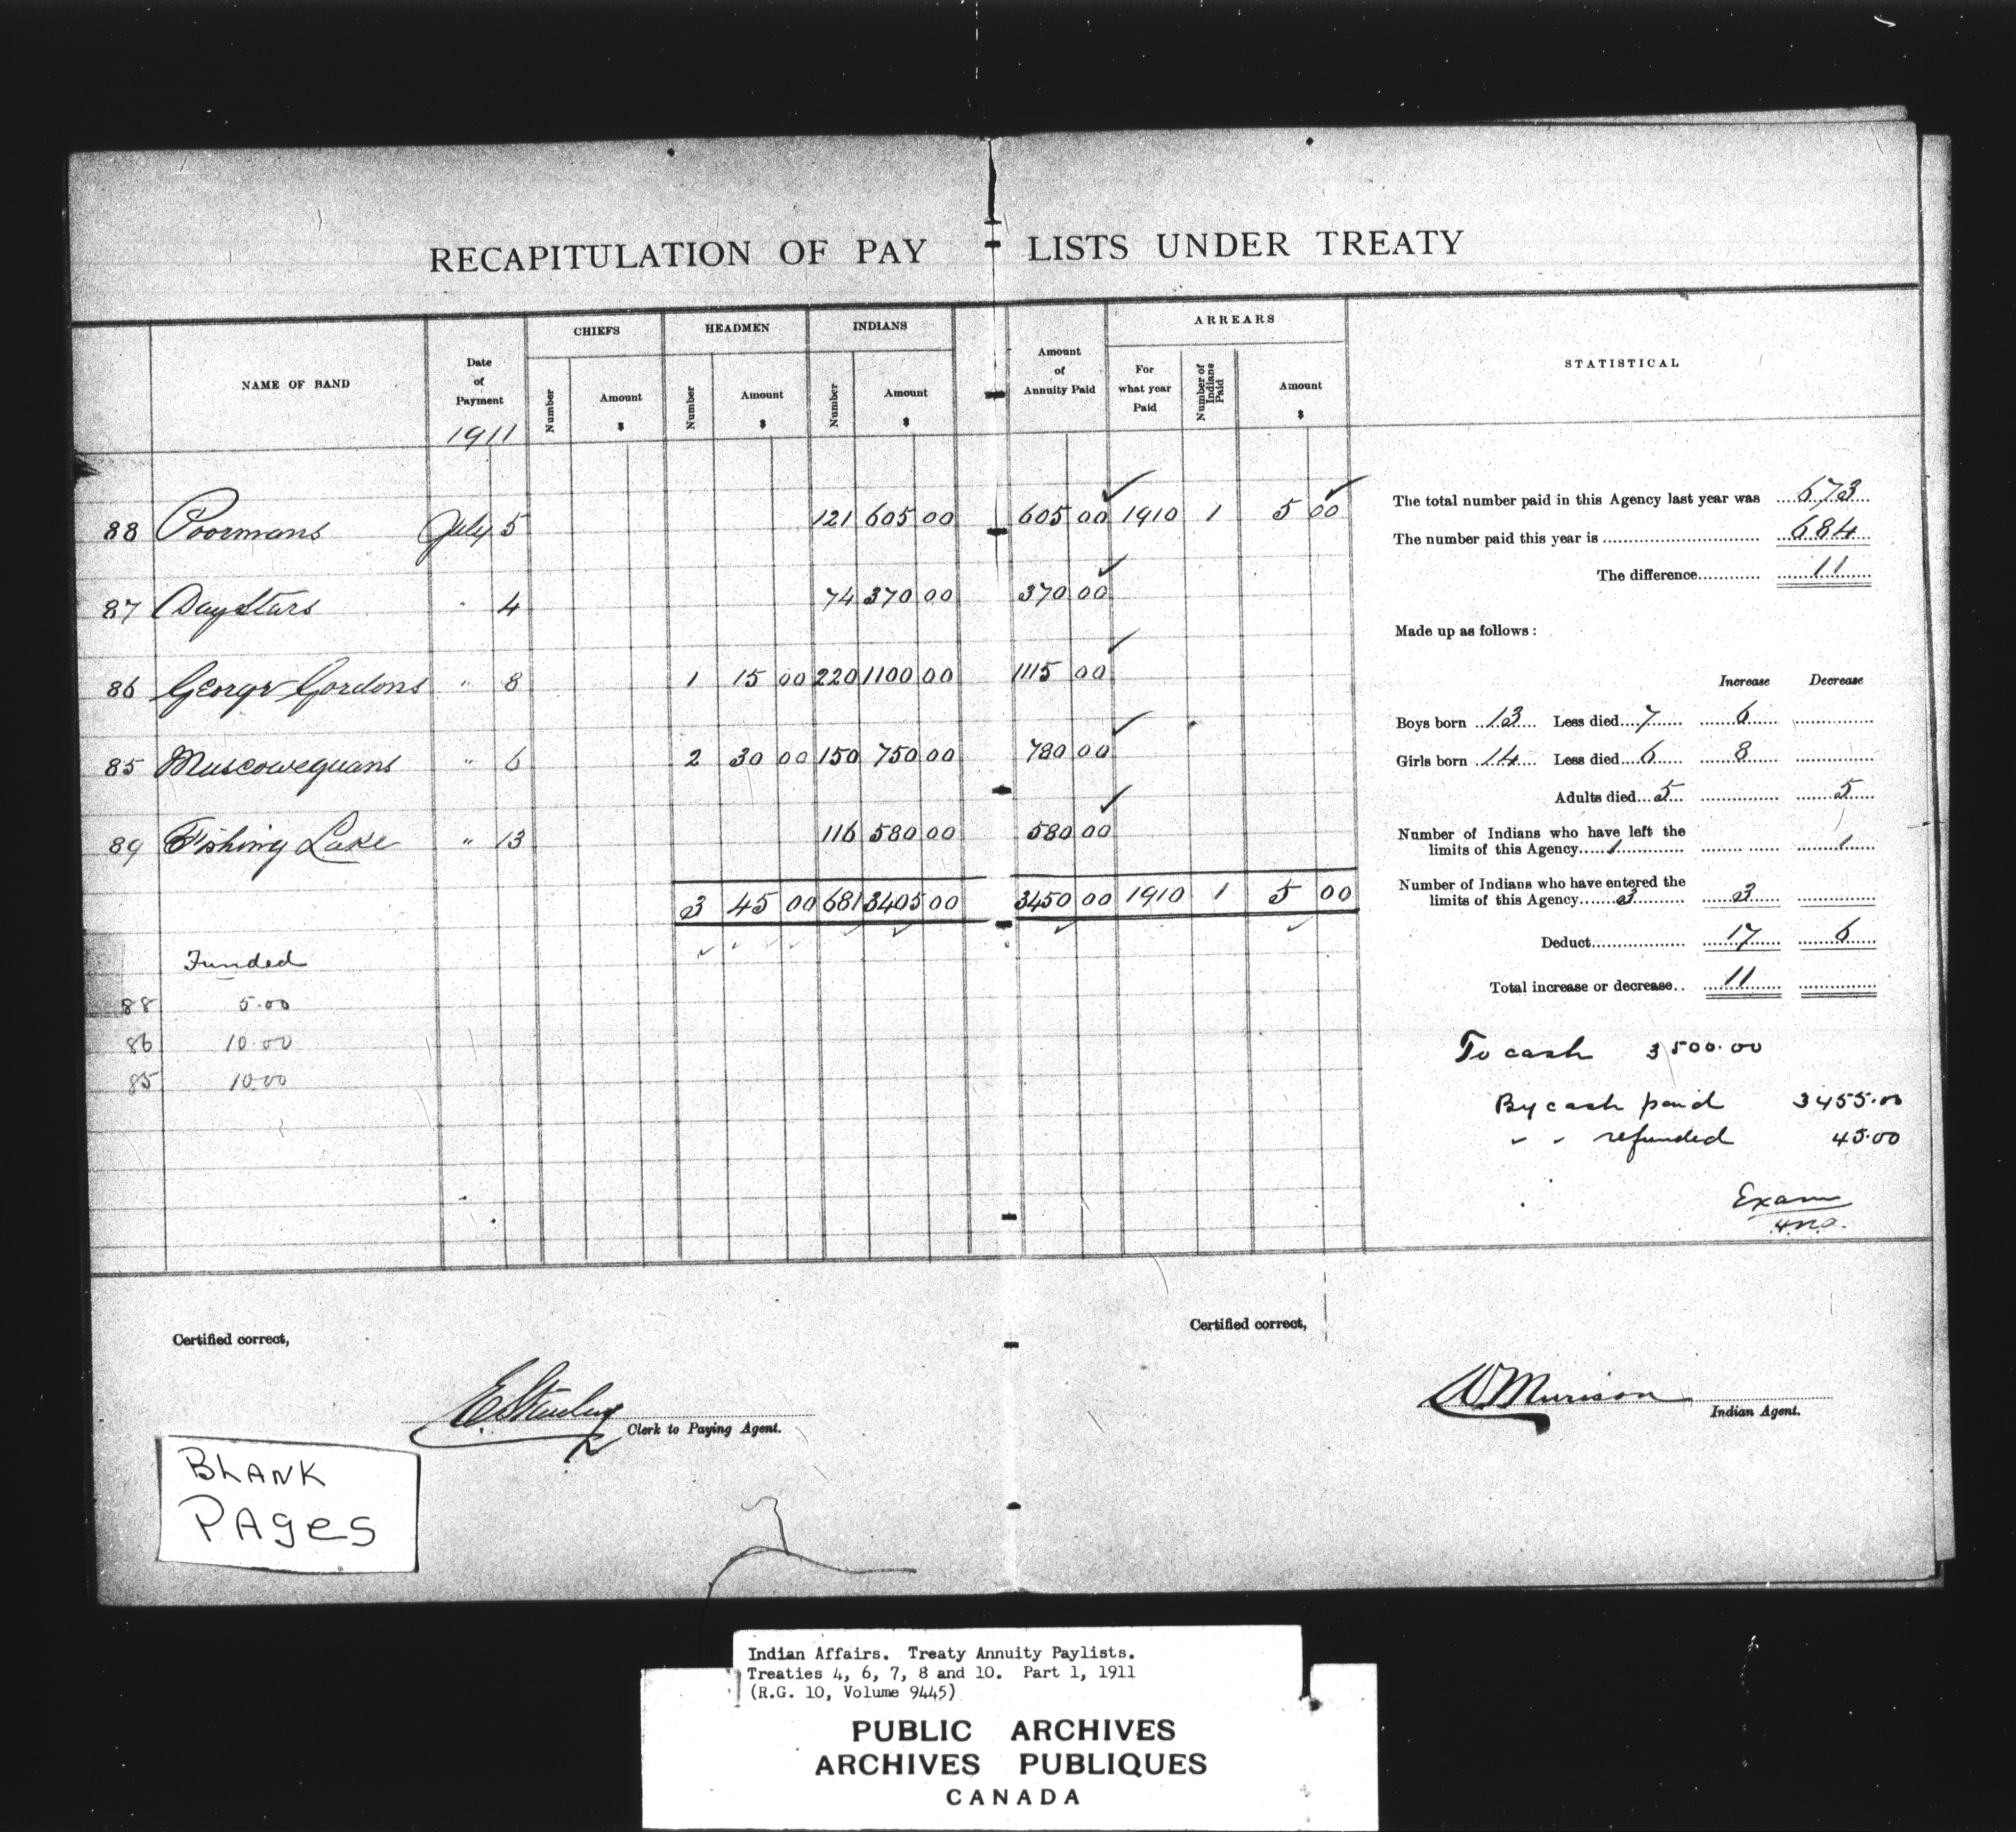 RECAPITULATION OF PAY LISTS UNDER TREATY
NAME OF BAND | Date of Payment 1911 | CHIEFS Number | Amount $ | HEADMEN Number | Amount $ | INDIANS Number | Amount $ | Amount of Annuity Paid | ARREARS For what year Paid | Number of Indians Paid | Amount $
88 Poormans July 5 121 605 00 605 00 1910 1 5 00
87 Day Stars " 4 74 370 00 370 00
86 George Gordons " 8 1 15 00 220 1100 00 1115 00
85 Muscowequans " 6 2 30 00 150 750 00 780 00
89 Fishing Lake " 13 116 580 00 580 00
3 45 00 681 3405 00 3450 00 1910 1 5 00
Funded
88 5.00
86 10.00
85 10.00
STATISTICAL
The total number paid in this Agency last year was 673
The number paid this year is 684
The difference 11
Made up as follows:
Increase Decrease
Boys born 13 Less died 7 6
Girls born 14 Less died 6 8
Adults died 5 5
Number of Indians who have left the
limits of this Agency 1 1
Number of Indians who have entered the
limits of this Agency 3 3
Deduct 17 6
Total increase or decrease.. 11
To cash 3500.00
By cash paid 3455.00
" " refunded 45.00
Exam
Certified correct,
Clerk to Paying Agent.
Certified correct,
W Murison
Indian Agent.
BLANK
PAges
Indian Affairs. Treaty Annuity Paylists.
Treaties 4, 6, 7, 8 and 10. Part 1, 1911
(R.G. 10, Volume 9445)
PUBLIC ARCHIVES
ARCHIVES PUBLIQUES
CANADA